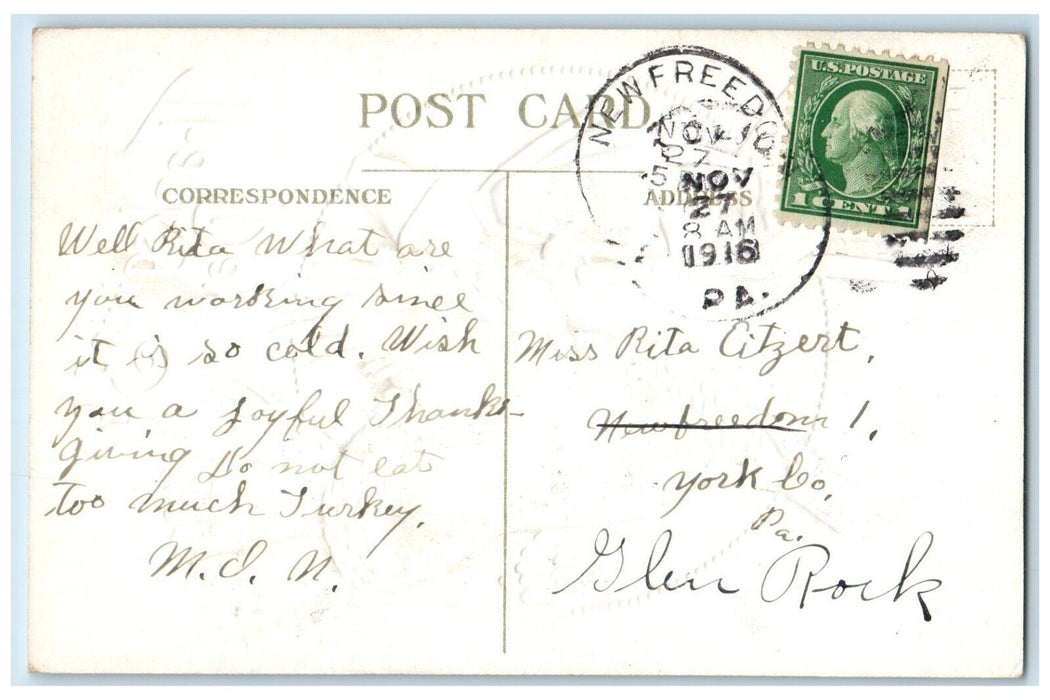 POST CARD
NEW FREEDO
NOV 16
27
5
NOV
27
8 AM
1916
PA.
U.S. POSTAGE
1 CENT 1
CORRESPONDENCE
ADDRESS
Well Rita What are
you working since
it is so cold. Wish
you a Joyful Thanks-
giving Do not eat
too much Turkey.
M. I. N.
Miss Rita Eitzert,
Newfreedom 1,
York Co,
Pa.
Glen Rock